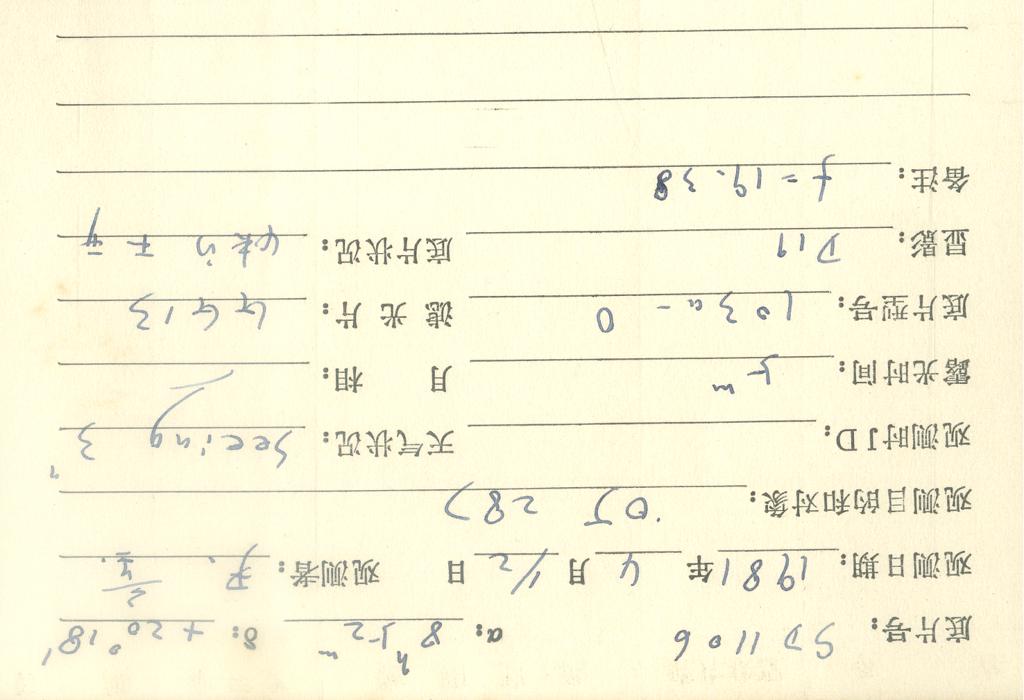 底片号: SD1106 α: 8ʰ52ᵐ δ: +20°18′
观测日期: 1981年 4月 1/2日 观测者:
观测目的和对象: OJ 287
观测时JD: 天气状况: Seeing 3"
露光时间: 5ᵐ 月 相:
底片型号: 103a-O 滤 光 片: GG13
显影: D19 底片状况:
备注: f=19.38